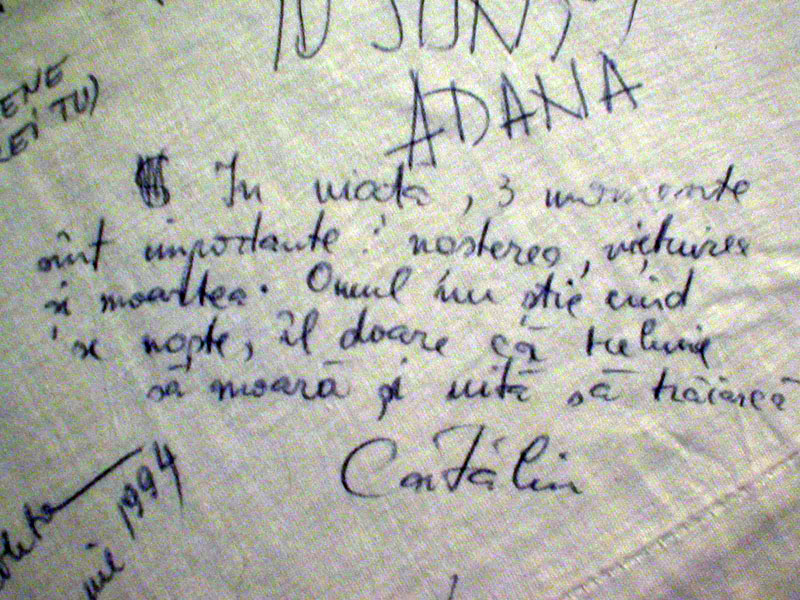 ADANA
ENE
EI TU)
În viață, 3 momente
sînt importante : nașterea, viețuirea
și moartea. Omul nu știe cînd
se naște, îl doare că trebuie
să moară și uită să trăiască
Cătălin
1994